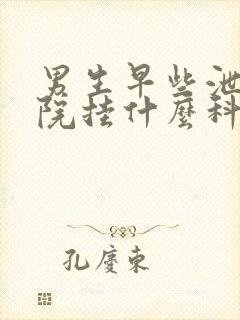 男生早些泄
院挂什麼科
孔慶東